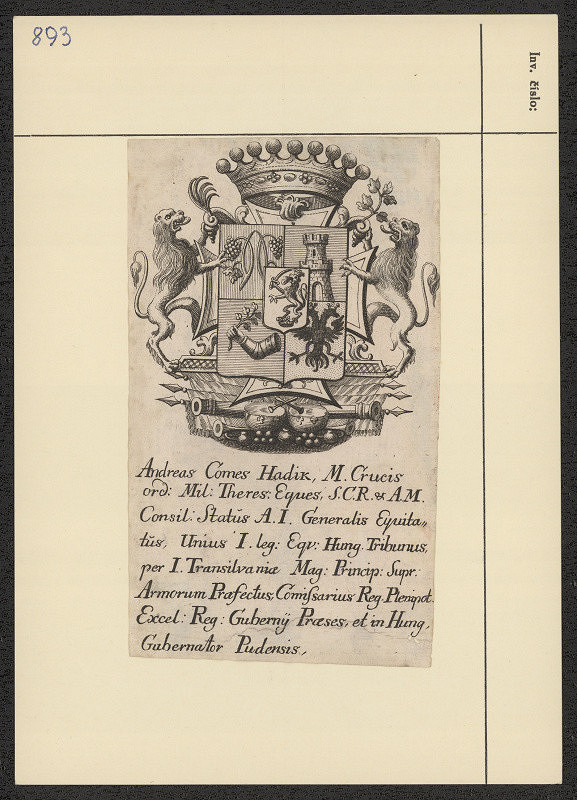 893
Inv. číslo:
Andreas Comes Hadik, M. Crucis
ord: Mil: Theres: Eques, S.C.R. & A.M.
Consil: Statŭs A.I. Generalis Equita„
tŭs, Unius I. leg: Eqv: Hung. Tribunus,
per I. Transilvaniæ Mag: Princip: Supr:
Armorum Præfectus, Comissarius Reg. Plenipot.
Excel: Reg: Gubernÿ Præses, et in Hung,
Gubernator Pudensis,